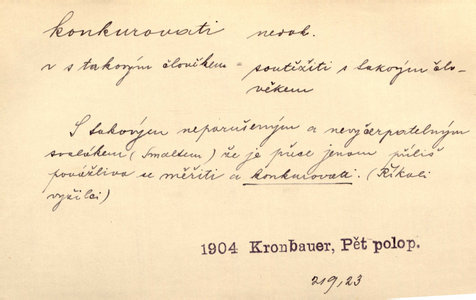 konkurovati nedok.
v s takovým člověkem = soutěžiti s takovým člo-
věkem
S takovým neporušeným a nevyčerpatelným
svalákem (Smaltem) že je přece jenom příliš
povážlivo se měřiti a konkurovati. (Říkali
vyžilci)
1904 Kronbauer, Pět polop.
219,23